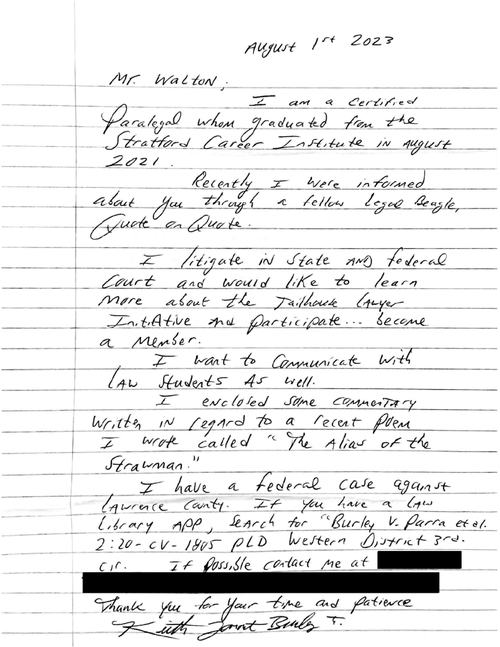 August 1st 2023
Mr. Walton,
I am a certified
Paralegal whom graduated from the
Stratford Career Institute in August
2021.
Recently I were informed
about you through a fellow legal Beagle,
Quote on Quote.
I litigate in State AND federal
Court and would like to learn
more about the Jailhouse lawyer
InitiAtive and participate... become
a member.
I want to Communicate with
LAW Students As well.
I enclosed some commentary
written in regard to a recent poem
I wrote called "The Alias of the
Strawman."
I have a federal case against
Lawrence County. If you have a law
library APP, search for "Burley V. Parra et al.
2:20-CV-1805 PLD Western District 3rd.
cir. If possible contact me at
Thank you for your time and patience